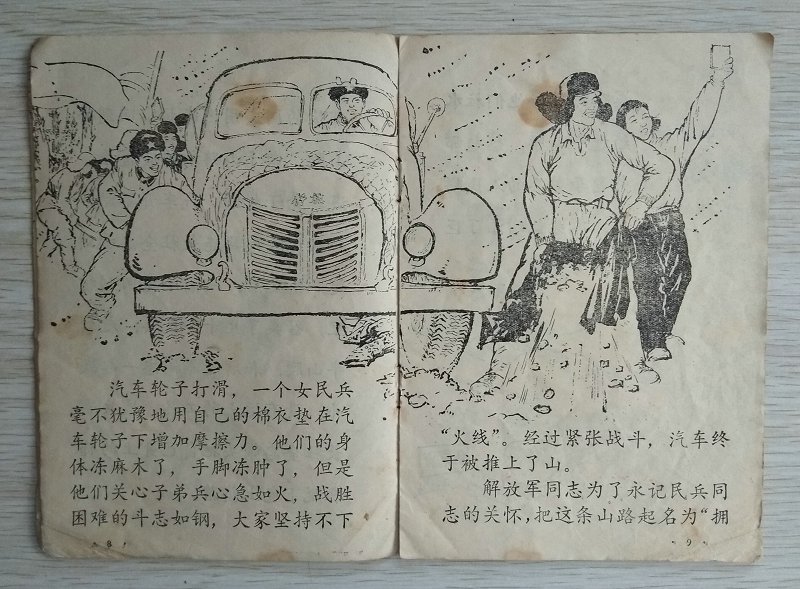 汽车轮子打滑，一个女民兵
毫不犹豫地用自己的棉衣垫在汽
车轮子下增加摩擦力。他们的身
体冻麻木了，手脚冻肿了，但是
他们关心子弟兵心急如火，战胜
困难的斗志如钢，大家坚持不下
8
“火线”。经过紧张战斗，汽车终
于被推上了山。
解放军同志为了永记民兵同
志的关怀，把这条山路起名为“拥
9